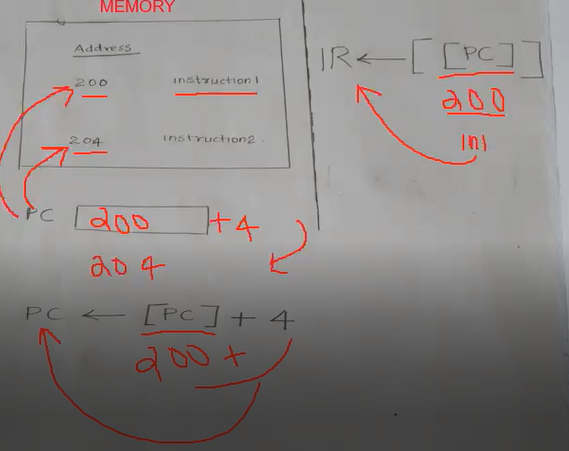 MEMORY
Address
200 instruction1
204 instruction2
PC 200 +4
204
PC ← [PC] + 4
200 +
IR ← [[PC]]
200
In1